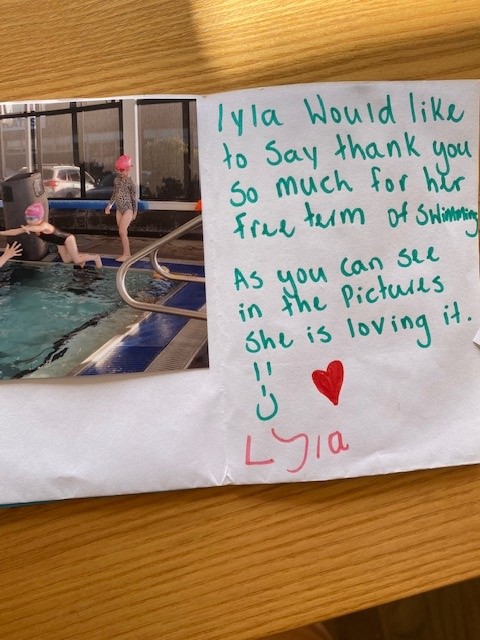 lyla Would like
to Say thank you
So much for her
free term of Swimming
As you can see
in the Pictures
She is loving it.
Lyla